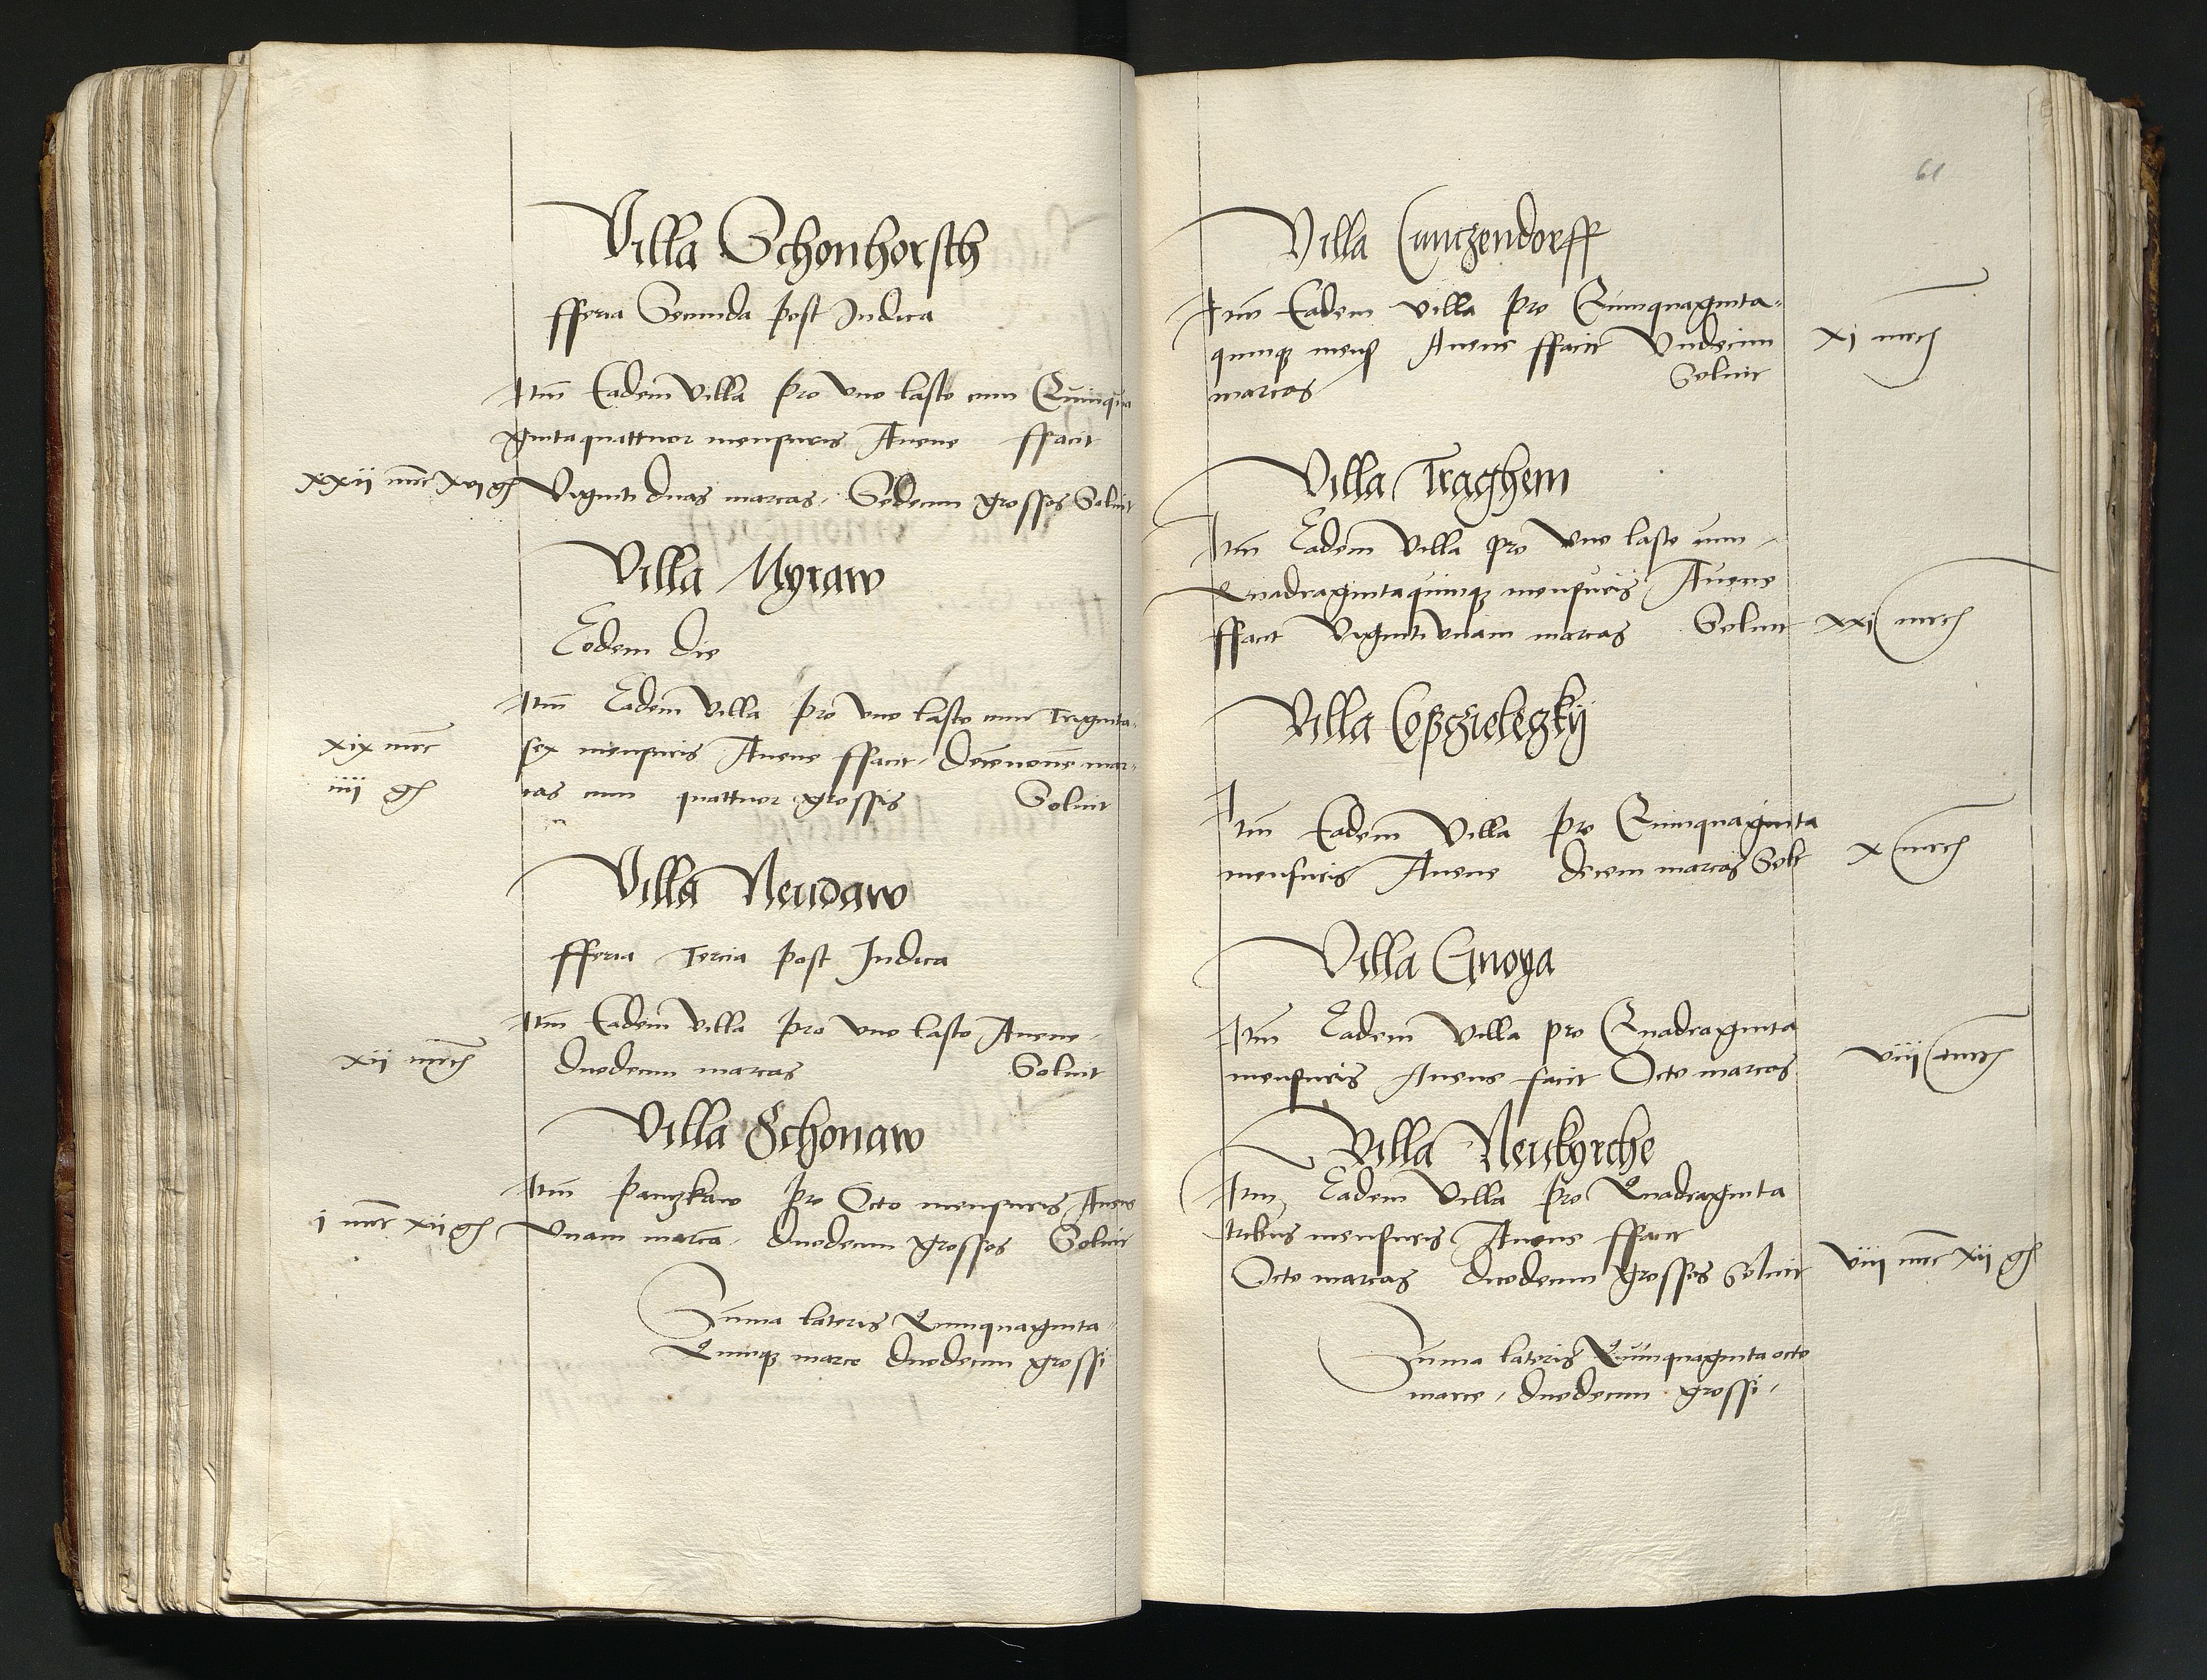 Villa Schonhorsth
fferia Secunda post Judica
Itm Eadem Villa pro vno lasto cum Quinqua
gintaquattuor mensuris Auene ffacit
xxii mrc xvi gs Viginti duas marcas, Sedecim grossos Soluit
Villa Myraw
Eodem die
Itm Eadem Villa pro vno lasto cum Triginta
xix mrc sex mensuris Auene ffacit, decenouem mar-
iiii gs cas cum quattuor grossis Soluit
Villa Neudaw
fferia Tercia post Judica
Itm Eadem Villa pro vno lasto Auene
xii mrcs duodecim marcas Soluit
Villa Schonaw
Itm Panczkaw pro Octo mensuris Auene
i mrc xii gs Vnam marcã, duodecim grossos Soluit
Suma lateris Quinquaginta
Quinqz marce duodecim grossi
61
Villa Cunczendorff
Itm Eadem villa pro Quinquaginta
quinqz mens Auene ffacit Vndecim xi mrcs
marcas Soluit
Villa Traghem
Itm Eadem Villa pro vno lasto cum
Quadragintaquinqz mensuris Auene
ffacit Viginti vnam marcas Soluit xxi mrcs
Villa
Itm Eadem Villa pro Quinquaginta
mensuris Auene decem marcas Solt x mrcs
Villa Gnoya
Itm Eadem Villa pro Quadraginta
mensuris Auene facit Octo marcas viii mrcs
Villa Neukyrche
Itm Eadem Villa pro Quadraginta
tribus mensuris Auene ffacit
Octo marcas duodecim grossos Soluit viii mrc xii gs
Suma lateris Quinquaginta octo
marce, duodecim grossi,